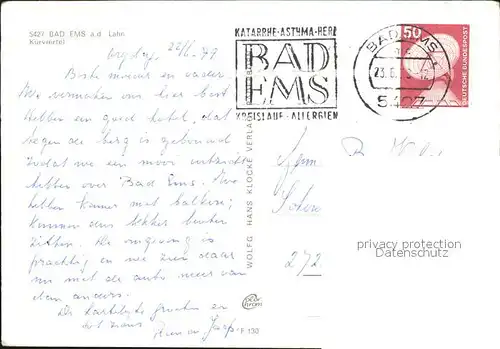 5427 BAD EMS a.d. Lahn
Kurviertel
22/6. 79
Beste mevrouw en vader
We vermaken ons hier best
Hebben een goed hotel, dat
tegen de berg is gebouwd
zodat we een mooi uitzicht
hebben over Bad Ems. We
hebben kamer met balkon,
kunnen dus lekker buiten
zitten. De omgeving is
prachtig en we zien daar
nu met de auto meer van
dan anders.
De hartelijke groeten en
tot ziens
KATARRHE-ASTHMA-HERZ
BAD
EMS
KREISLAUF-ALLERGIEN
BAD EMS
23.6.
5427
50
DEUTSCHE BUNDESPOST
WOLFG. HANS KLOCKE VERLAG
F 130
272
privacy protection
Datenschutz